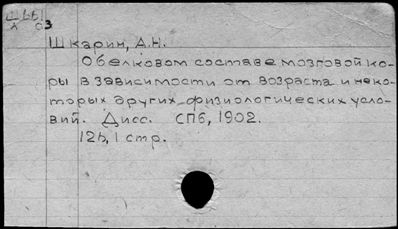 Ш661
А 03
Шкарин, А.Н.
О белковом составе мозговой ко-
ры в зависимости от возраста и неко-
торых других физиологических усло-
вий. Дисс. СПб, 1902.
126, 1 стр.